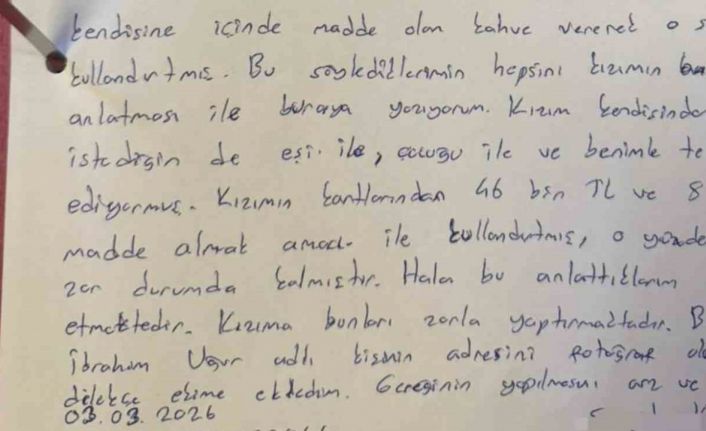 kendisine içinde madde olan kahve vererek o s
kullandırtmış. Bu söylediklerimin hepsini kızımın ba
anlatması ile buraya yazıyorum. Kızım kendisinde
istediğin de eşi ile, çocuğu ile ve benimle te
ediyormuş. Kızımın kartlarından 46 bin TL ve 8
madde almak amacı ile kullandırtmış, o yüzde
zor durumda kalmıştır. Halen bu anlattıklarım
etmektedir. Kızıma bunları zorla yaptırmaktadır. B
İbrahim Uğur adlı kişinin adresini fotoğraf ola
dilekçe ekime ekledim. Gereğinin yapılmasını arz ve
03.03.2026